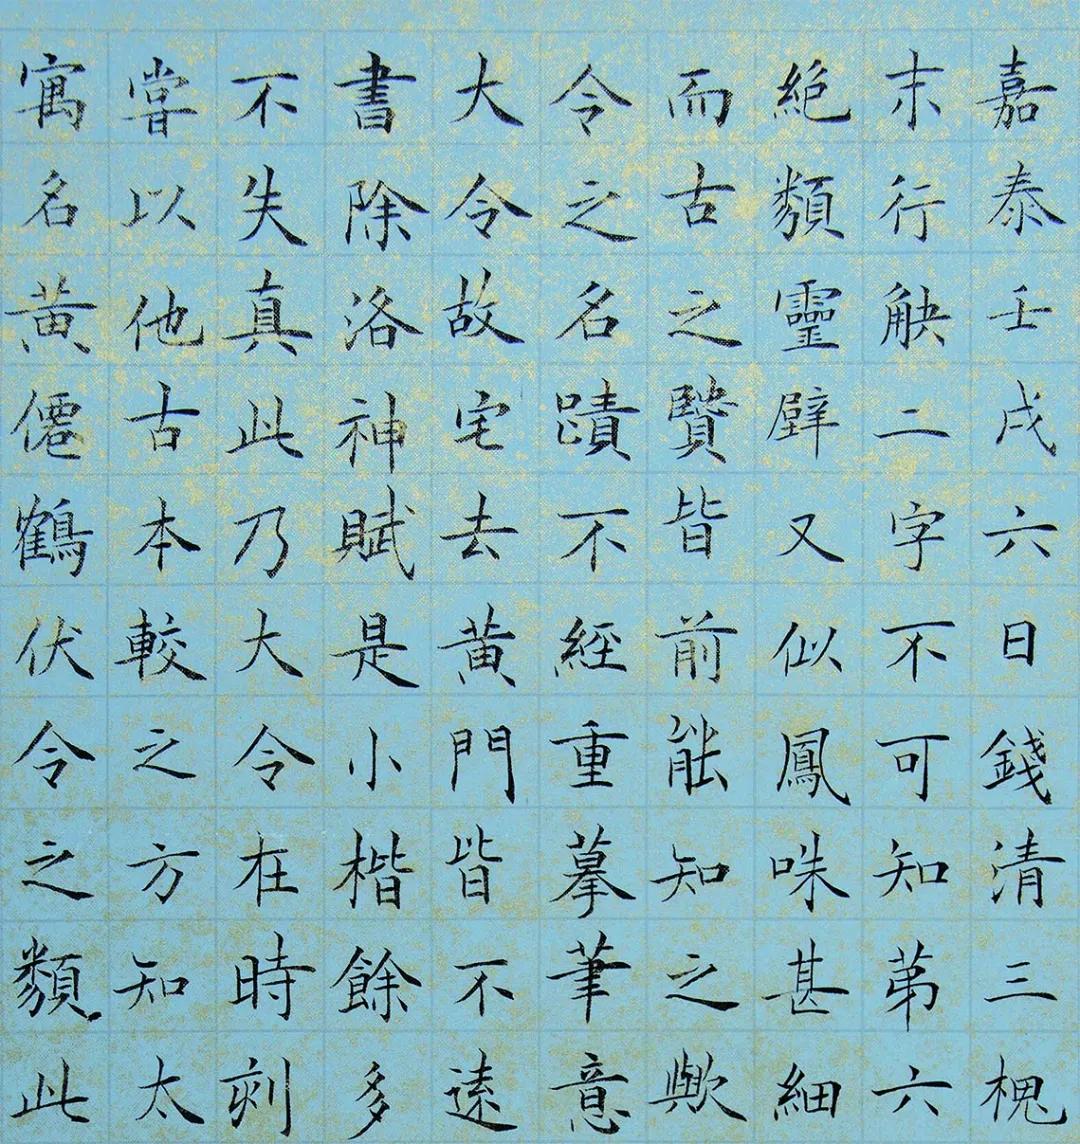 嘉泰壬戌六日錢清三槐
末行觖二字不可知第六
絕類靈壁又似鳳咮甚細
而古之賢皆前能知之歟
令之名蹟不經重摹筆意
大令故宅去黃門皆不遠
書除洛神賦是小楷餘多
不失真此乃大令在時刻
嘗以他古本較之方知太
寓名黃僊鶴伏令之類此